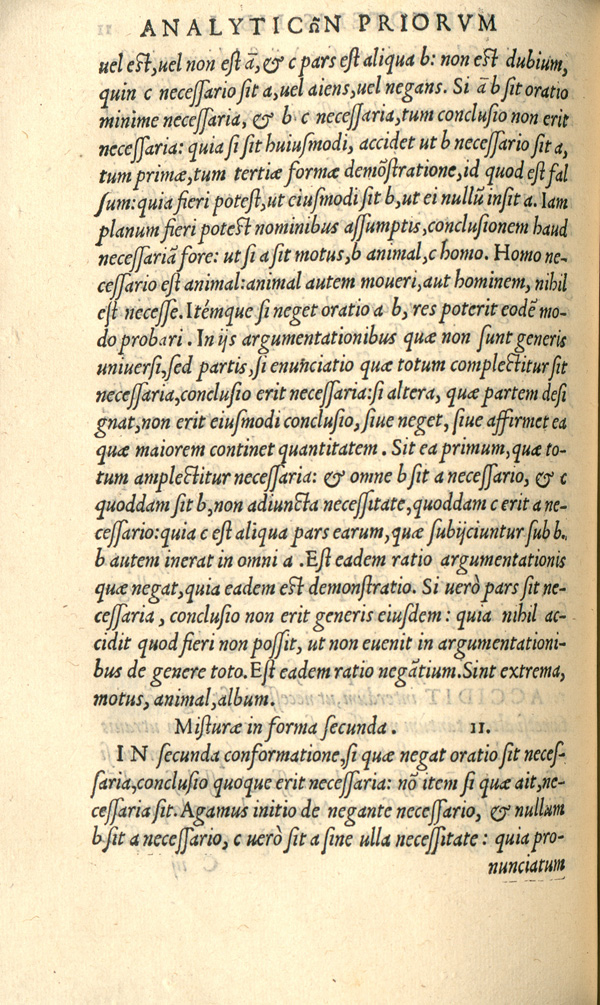 ANALYTICωN PRIORVM
uel est, uel non est ā, & c pars est aliqua b: non est dubium,
quin c necessario sit a, uel aiens, uel negans. Si ā b sit oratio
minime necessaria, & b c necessaria, tum conclusio non erit
necessaria: quia si sit huiusmodi, accidet ut b necessario sit a,
tum primæ, tum tertiæ formæ demōstratione, id quod est fal
sum: quia fieri potest, ut eiusmodi sit b, ut ei nullū insit a. Iam
planum fieri potest nominibus assumptis, conclusionem haud
necessariā fore: ut si a sit motus, b animal, c homo. Homo ne-
cessario est animal: animal autem moueri, aut hominem, nihil
est necesse. Itémque si neget oratio a b, res poterit eodē mo-
do probari. In ijs argumentationibus quæ non sunt generis
uniuersi, sed partis, si enunciatio quæ totum complectitur sit
necessaria, conclusio erit necessaria: si altera, quæ partem desi
gnat, non erit eiusmodi conclusio, siue neget, siue affirmet ea
quæ maiorem continet quantitatem. Sit ea primum, quæ to-
tum amplectitur necessaria: & omne b sit a necessario, & c
quoddam sit b, non adiuncta necessitate, quoddam c erit a ne-
cessario: quia c est aliqua pars earum, quæ subijciuntur sub b.
b autem inerat in omni a. Est eadem ratio argumentationis
quæ negat, quia eadem est demonstratio. Si uerò pars sit ne-
cessaria, conclusio non erit generis eiusdem: quia nihil ac-
cidit quod fieri non possit, ut non euenit in argumentationi-
bus de genere toto. Est eadem ratio negātium. Sint extrema,
motus, animal, album.
Misturæ in forma secunda. 11.
IN secunda conformatione, si quæ negat oratio sit neces-
saria, conclusio quoque erit necessaria: nō item si quæ ait, ne-
cessaria sit. Agamus initio de negante necessario, & nullum
b sit a necessario, c uerò sit a sine ulla necessitate: quia pro-
nunciatum